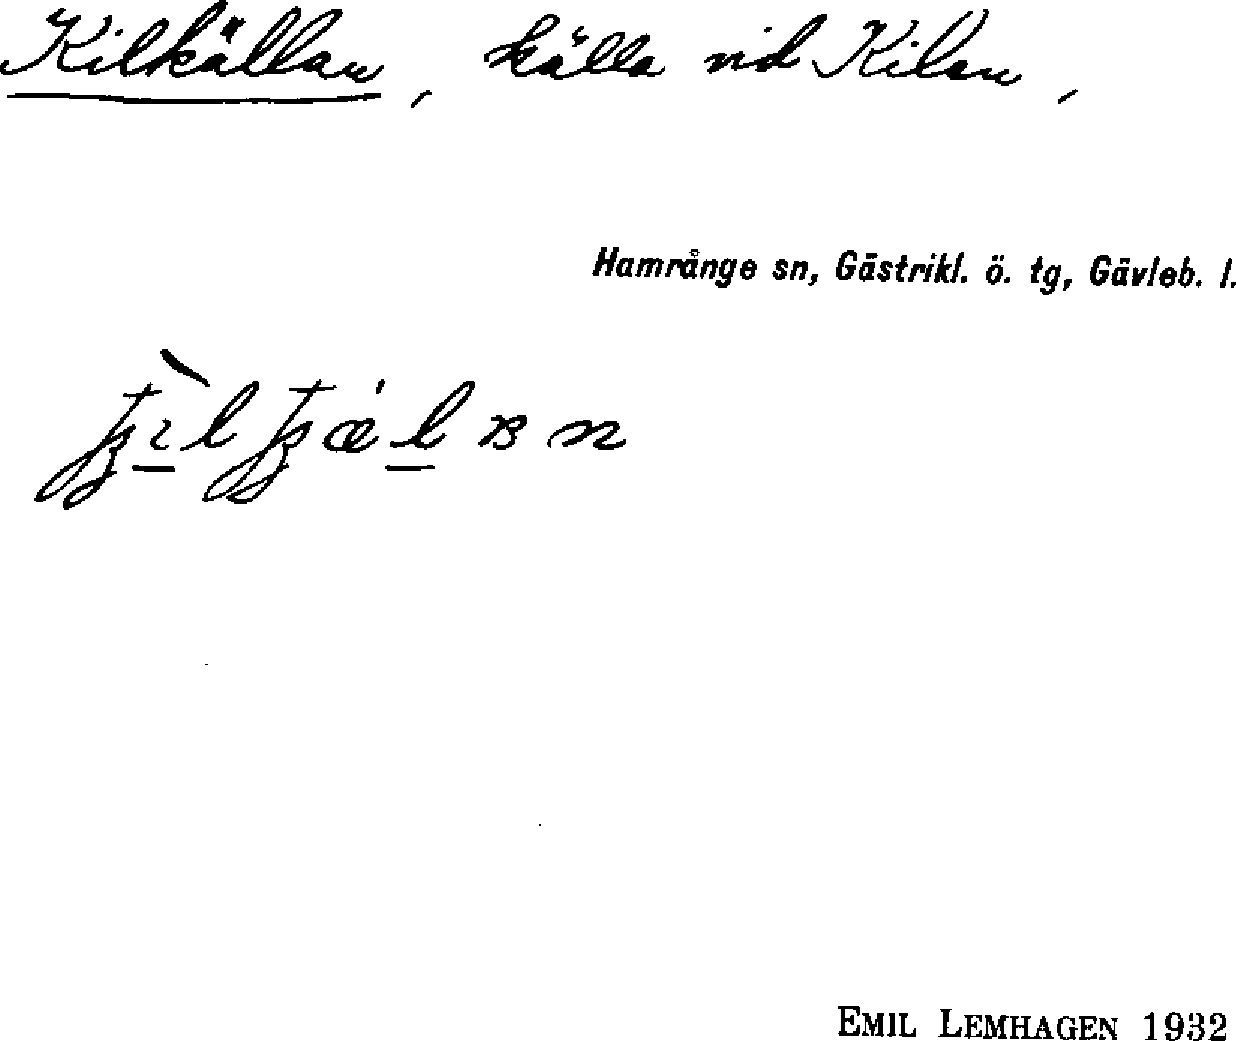 Kilkällan, källa vid Kilen,
Hamrånge sn, Gästrikl. ö. tg, Gävleb. l.
EMIL LEMHAGEN 1932